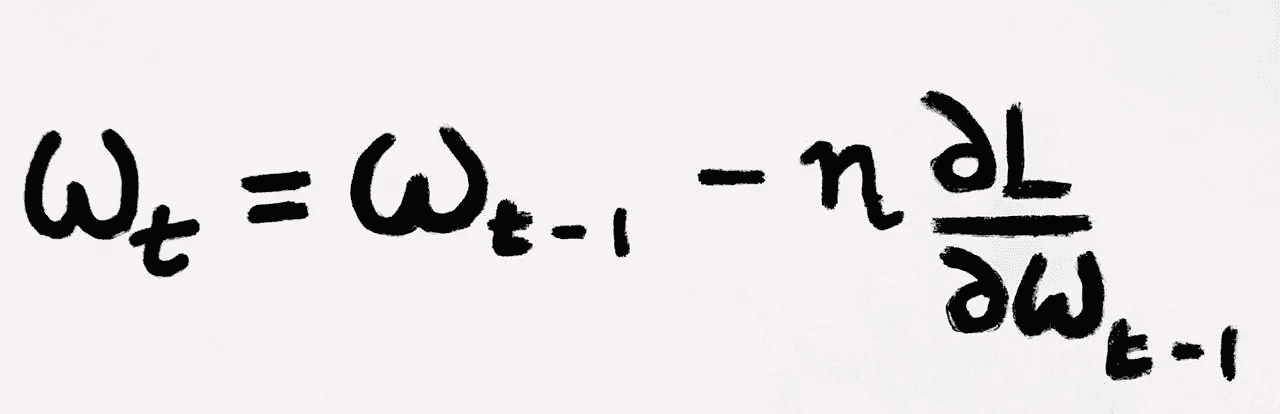 ω_t = ω_{t-1} - η ∂L/∂ω_{t-1}